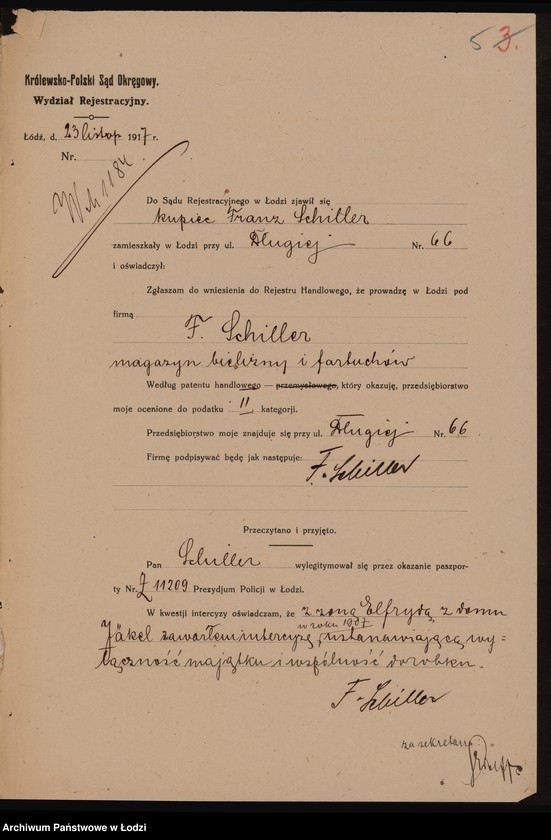 5 3.
Królewsko-Polski Sąd Okręgowy.
Wydział Rejestracyjny.
Łódź, d. 23 listop 1917 r.
Nr.
W.h 1184
Do Sądu Rejestracyjnego w Łodzi zjawił się
kupiec Franz Schiller
zamieszkały w Łodzi przy ul. Długiej Nr. 66
i oświadczył:
Zgłaszam do wniesienia do Rejestru Handlowego, że prowadzę w Łodzi pod
firmą
F. Schiller
magazyn bielizny i fartuchów
Według patentu handlowego — przemysłowego, który okazuję, przedsiębiorstwo
moje ocenione do podatku II kategorji.
Przedsiębiorstwo moje znajduje się przy ul. Długiej Nr. 66
Firmę podpisywać będę jak następuje:
F. Schiller
Przeczytano i przyjęto.
Pan Schiller wylegitymował się przez okazanie paszpor-
ty Nr. 11209 Prezydjum Policji w Łodzi.
W kwestji intercyzy oświadczam, że z żoną Elfrydą z domu
w roku 1907
Jäkel zawarłem intercyzę, ustanawiającą wy=
łączność majątku i wspólność dorobku.
F. Schiller
za sekretarza
Archiwum Państwowe w Łodzi